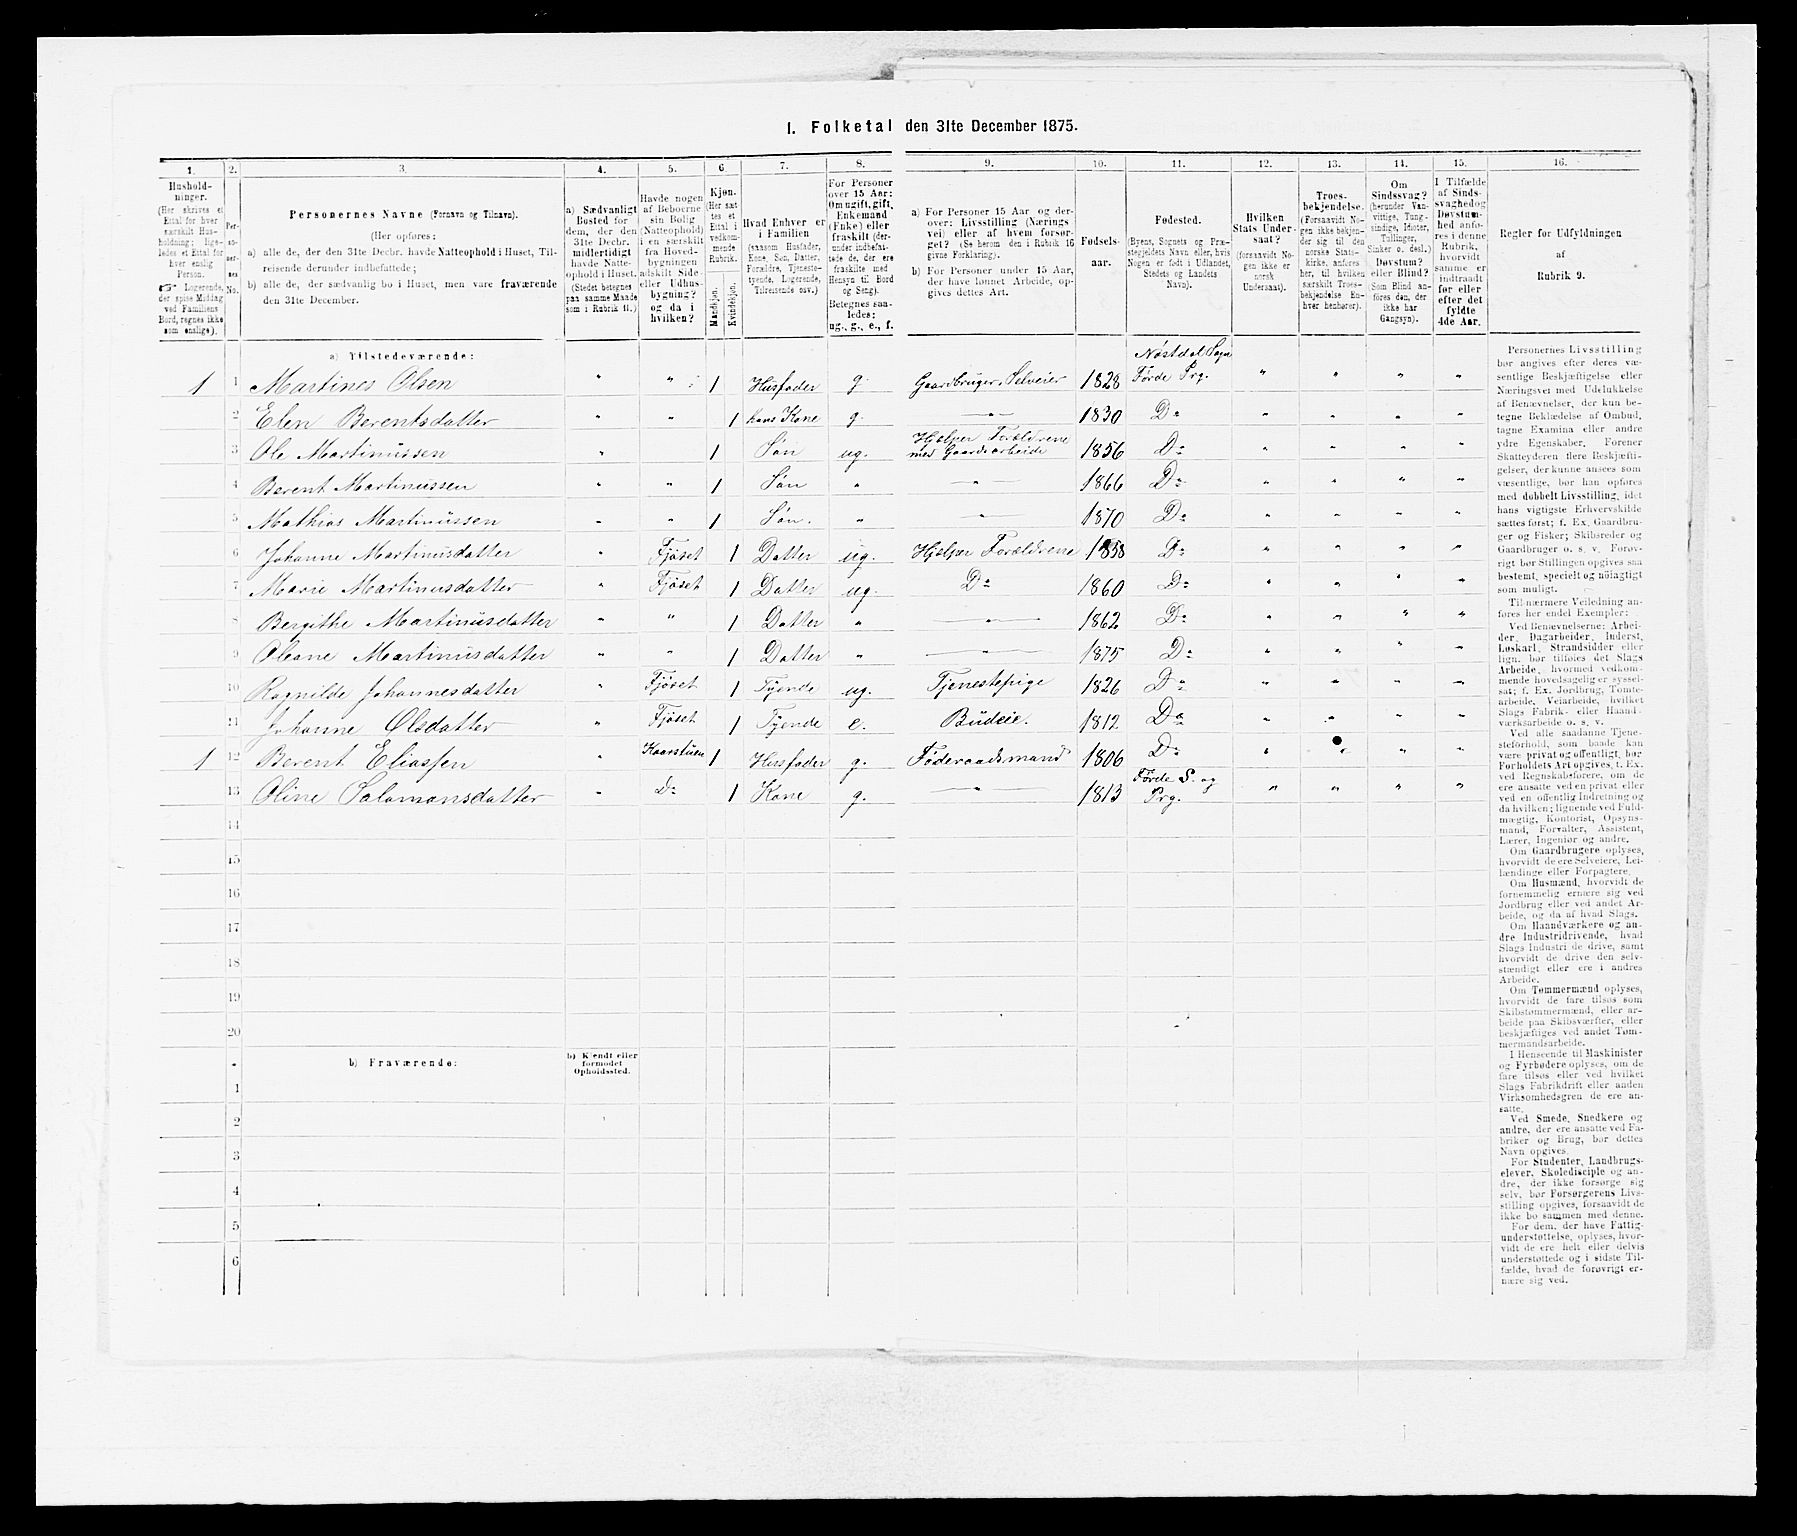 I. Folketal den 31te December 1875.
1. 2. 3. 4. 5. 6. 7. 8. 9. 10. 11. 12. 13. 14. 15. 16.
Hushold-
ninger.
(Her skrives et
Ettal for hver
særskilt Hus-
holdning; lige-
ledes et Ettal for
hver enslig
Person.
☞ Logerende,
der spise Middag
ved Familiens
Bord, regnes ikke
som enslige).
Per-
so-
ner-
nes
No.
Personernes Navne (Fornavn og Tilnavn).
(Her opføres:
a) alle de, der den 31te Decbr. havde Natteophold i Huset, Til-
reisende derunder indbefattede;
b) alle de, der sædvanlig bo i Huset, men vare fraværende
den 31te December.
a) Sædvanligt
Bosted for
dem, der den
31te Decbr.
midlertidigt
havde Natte-
ophold i Huset.
(Stedet betegnes
paa samme Maade
som i Rubrik 11.)
Havde nogen
af Beboerne
sin Bolig
(Natteophold)
i en særskilt
fra Hoved-
bygningen
adskilt Side-
eller Udhus-
bygning?
og da i
hvilken?
Kjøn.
(Her sæt-
tes et
Ettal i
vedkom-
mende
Rubrik.
Mandkjøn.
Kvindekjøn.
Hvad Enhver er
i Familien
(saasom Husfader,
Kone, Søn, Datter,
Forældre, Tjeneste-
tyende, Logerende,
Tilreisende osv.)
For Personer
over 15 Aar:
Om ugift, gift,
Enkemand
(Enke) eller
fraskilt (der-
under indbefat-
tede de, der ere
fraskilte med
Hensyn til Bord
og Seng).
Betegnes saa-
ledes:
ug., g., e., f.
a) For Personer 15 Aar og der-
over: Livsstilling (Nærings-
vei) eller af hvem forsør-
get? (Se herom den i Rubrik 16
givne Forklaring).
b) For Personer under 15 Aar,
der have lønnet Arbeide, op-
gives dettes Art.
Fødsels-
aar.
Fødested.
(Byens, Sognets og Præ-
stegjeldets Navn eller, hvis
Nogen er født i Udlandet,
Stedets og Landets
Navn).
Hvilken
Stats Under-
saat?
(forsaavidt No-
gen ikke er
norsk
Undersaat).
Troes-
bekjendelse.
(Forsaavidt No-
gen ikke bekjen-
der sig til den
norske Stats-
kirke, anføres
her, til hvilken
særskilt Troes-
bekjendelse En-
hver henhører).
Om
Sindssvag?
(herunder Van-
vittige, Tung-
sindige, Idioter,
Tullinger,
Sinker o. desl.)
Døvstum?
eller Blind?
(Som Blind an-
føres den, der
ikke har
Gangsyn).
I Tilfælde
af Sinds-
svaghed og
Døvstum-
hed anfø-
res i denne
Rubrik,
hvorvidt
samme er
indtraadt
før eller
efter det
fyldte
4de Aar.
Regler for Udfyldningen
af
Rubrik 9.
a) Tilstedeværende:
1 1 Martines Olsen " " 1 Husfader g. Gaardbruger, Selveier 1828 Nøstdal Sogn Førde Prg. " " " "
2 Elen Berentsdatter " " 1 hans Kone g. —"— 1830 Do " " " "
3 Ole Martinussen " 1 Søn ug. Hjælper Forældrene med Gaardsarbeide 1856 Do " " " "
4 Berent Martinussen " " 1 Søn " —"— 1866 Do " " " "
5 Mathias Martinussen " " 1 Søn. " —"— 1870 Do " " " "
6 Johanne Martinusdatter " Fjøset 1 Datter ug. Hjælper Forældrene 1858 Do " " " "
7 Marie Martinusdatter " Fjøset 1 Datter ug. Do 1860 Do " " " "
8 Bergithe Martinusdatter " " 1 Datter " —"— 1862 Do " " " "
9 Oleane Martinusdatter " " 1 Datter " —"— 1875 Do " " " "
10 Ragnilde Johannesdatter " Fjøset 1 Tyende ug. Tjenestepige 1826 Do " " " "
11 Johanne Olsdatter " Fjøset 1 Tyende e. Büdeie. 1812 Do " " " "
1 12 Berent Eliassen " Kaarstuen 1 Husfader g. Føderaadsmand 1806 Do " " " "
13 Oline Salamonsdatter " Do 1 Kone g. —"— 1813 Førde S. og Prg. " " " "
14
15
16
17
18
19
20
b) Fraværende:
b) Kjendt eller
formodet
Opholdssted.
1
2
3
4
5
6
Personernes Livsstilling
bør angives efter deres væ-
sentlige Beskjæftigelse eller
Næringsvei med Udelukkelse
af Benævnelser, der kun be-
tegne Beklædelse af Ombud,
tagne Examina eller andre
ydre Egenskaber. Forener
Skatteyderen flere Beskjæfti-
gelser, der kunne ansees som
væsentlige, bør han opføres
med dobbelt Livsstilling, idet
hans vigtigste Erhvervskilde
sættes først; f. Ex. Gaardbru-
ger og Fisker; Skibsreder og
Gaardbruger o. s. v. Forøv-
rigt bør Stillingen opgives saa
bestemt, specielt og nøiagtigt
som muligt.
Til nærmere Veiledning an-
føres her endel Exempler:
Ved Benævnelserne: Arbei-
der, Dagarbeider, Inderst,
Løskarl, Strandsidder eller
lign. bør tilføies det Slags
Arbeide, hvormed vedkom-
mende hovedsagelig er syssel-
sat; f. Ex. Jordbrug, Tomte-
arbeide, Veiarbeide, hvilket
Slags Fabrik- eller Haand-
værksarbeide o. s. v.
Ved alle saadanne Tjene-
steforhold, som baade kan
være privat og offentligt, bør
Forholdets Art opgives, t. Ex.
ved Regnskabsførere, om de
ere ansatte ved en privat eller
ved en offentlig Indretning og
da hvilken; lignende ved Fuld-
mægtig, Kontorist, Opsyns-
mand, Forvalter, Assistent,
Lærer, Ingeniør og andre.
Om Gaardbrugere oplyses,
hvorvidt de ere Selveiere, Lei-
lændinge eller Forpagtere.
Om Husmænd, hvorvidt de
fornemmelig ernære sig ved
Jordbrug eller ved andet Ar-
beide, og da af hvad Slags.
Om Haandværkere og an-
dre Industridrivende, hvad
Slags Industri de drive, samt
hvorvidt de drive den selv-
stændigt eller ere i andres
Arbeide.
Om Tømmermænd oplyses,
hvorvidt de fare tilsøs som
Skibstømmermænd, eller ar-
beide paa Skibsværfter, eller
beskjæftiges ved andet Tøm-
mermandsarbeide.
I Henseende til Maskinister
og Fyrbødere oplyses, om de
fare tilsøs eller ved hvilket
Slags Fabrikdrift eller anden
Virksomhedsgren de ere an-
satte.
Ved Smede, Snedkere og
andre, der ere ansatte ved Fa-
briker og Brug, bør dettes
Navn opgives.
For Studenter, Landbrugs-
elever, Skoledisciple og an-
dre, der ikke forsørge sig
selv, bør Forsørgerens Livs-
stilling opgives, forsaavidt de
ikke bo sammen med denne.
For dem, der have Fattig-
understøttelse, oplyses, hvor-
vidt de ere helt eller delvis
understøttede og i sidste Til-
fælde, hvad de forøvrigt er-
nære sig ved.